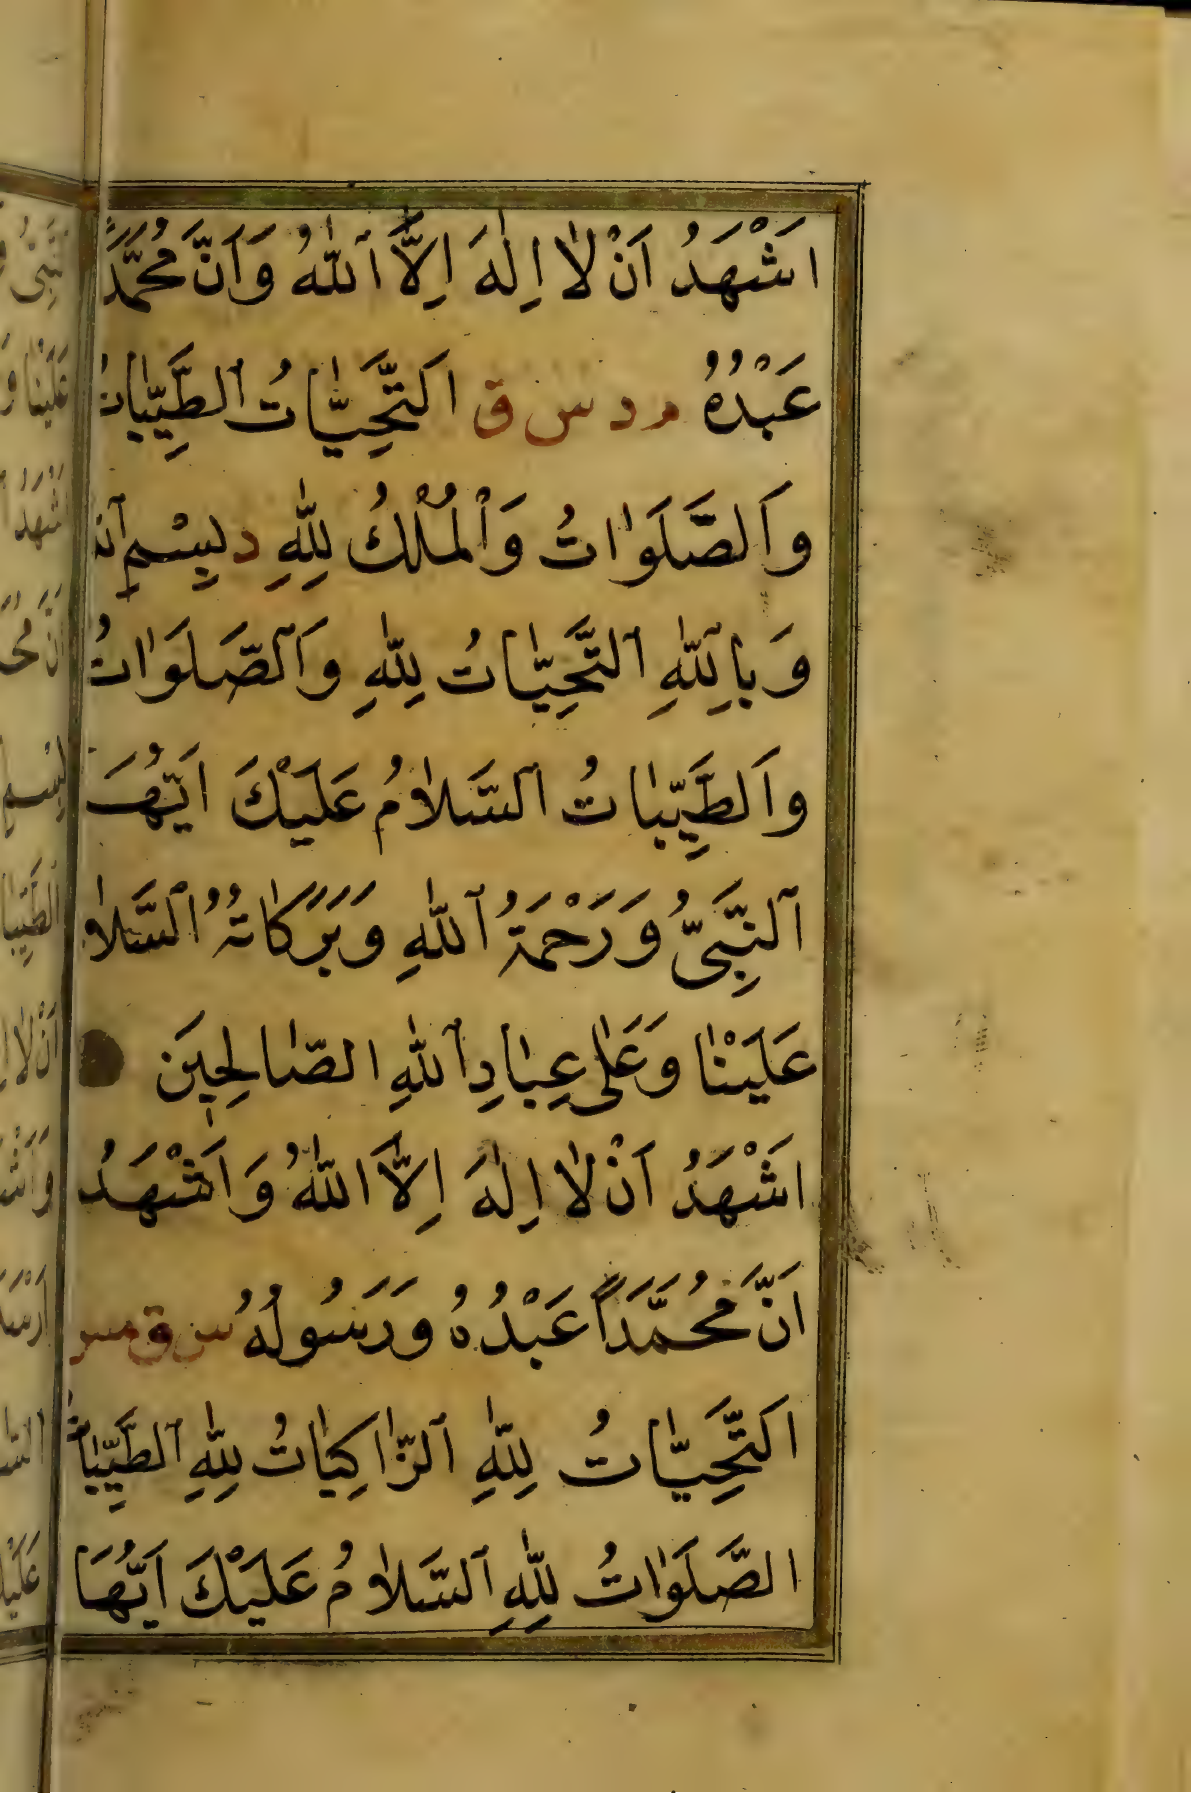 اَشْهَدُ اَنْ لٰا اِلٰهَ اِلَّا ٱللّٰهُ وَاَنَّ مُحَمَّدًا
عَبْدُهُ م د س ق اَلتَّحِيّٰاتُ ٱلطَّيِّبٰاتُ
وَٱلصَّلَوٰاتُ وَٱلْمُلْكُ لِلّٰهِ د بِسْمِ ٱللّٰهِ
وَبِاللّٰهِ ٱلتَّحِيّٰاتُ لِلّٰهِ وَٱلصَّلَوٰاتُ
وَٱلطَّيِّبٰاتُ ٱلسَّلٰامُ عَلَيْكَ اَيُّهَا
ٱلنَّبِىُّ وَرَحْمَةُ ٱللّٰهِ وَبَرَكٰاتُهُ ٱلسَّلٰامُ
عَلَيْنٰا وَعَلٰى عِبٰادِ ٱللّٰهِ الصّٰالِحِينَ
اَشْهَدُ اَنْ لٰا اِلٰهَ اِلَّا اللّٰهُ وَاَشْهَدُ
اَنَّ مُحَمَّدًا عَبْدُهُ وَرَسُولُهُ س ق مس
اَلتَّحِيّٰاتُ لِلّٰهِ ٱلزّٰاكِيٰاتُ لِلّٰهِ ٱلطَّيِّبٰاتُ
الصَّلَوٰاتُ لِلّٰهِ ٱلسَّلٰامُ عَلَيْكَ اَيُّهَا